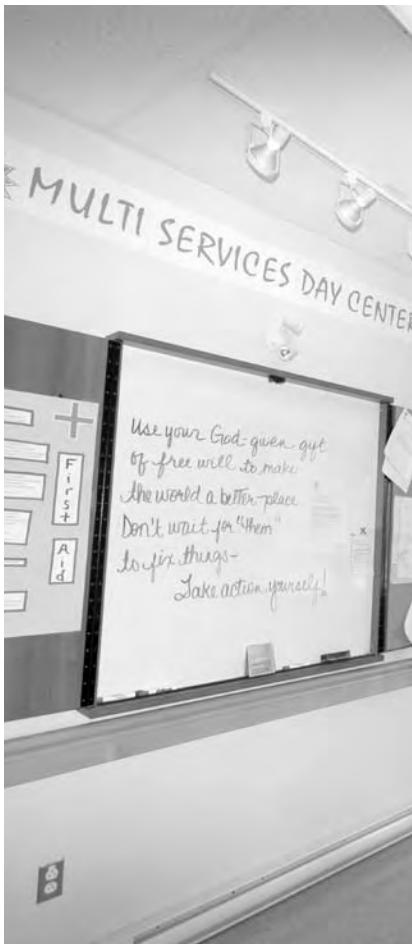 MULTI SERVICES DAY CENTER
Use your God-given gift
of free will to make
the world a better place
Don't wait for "them"
to fix things-
Take action yourself!
First
Aid